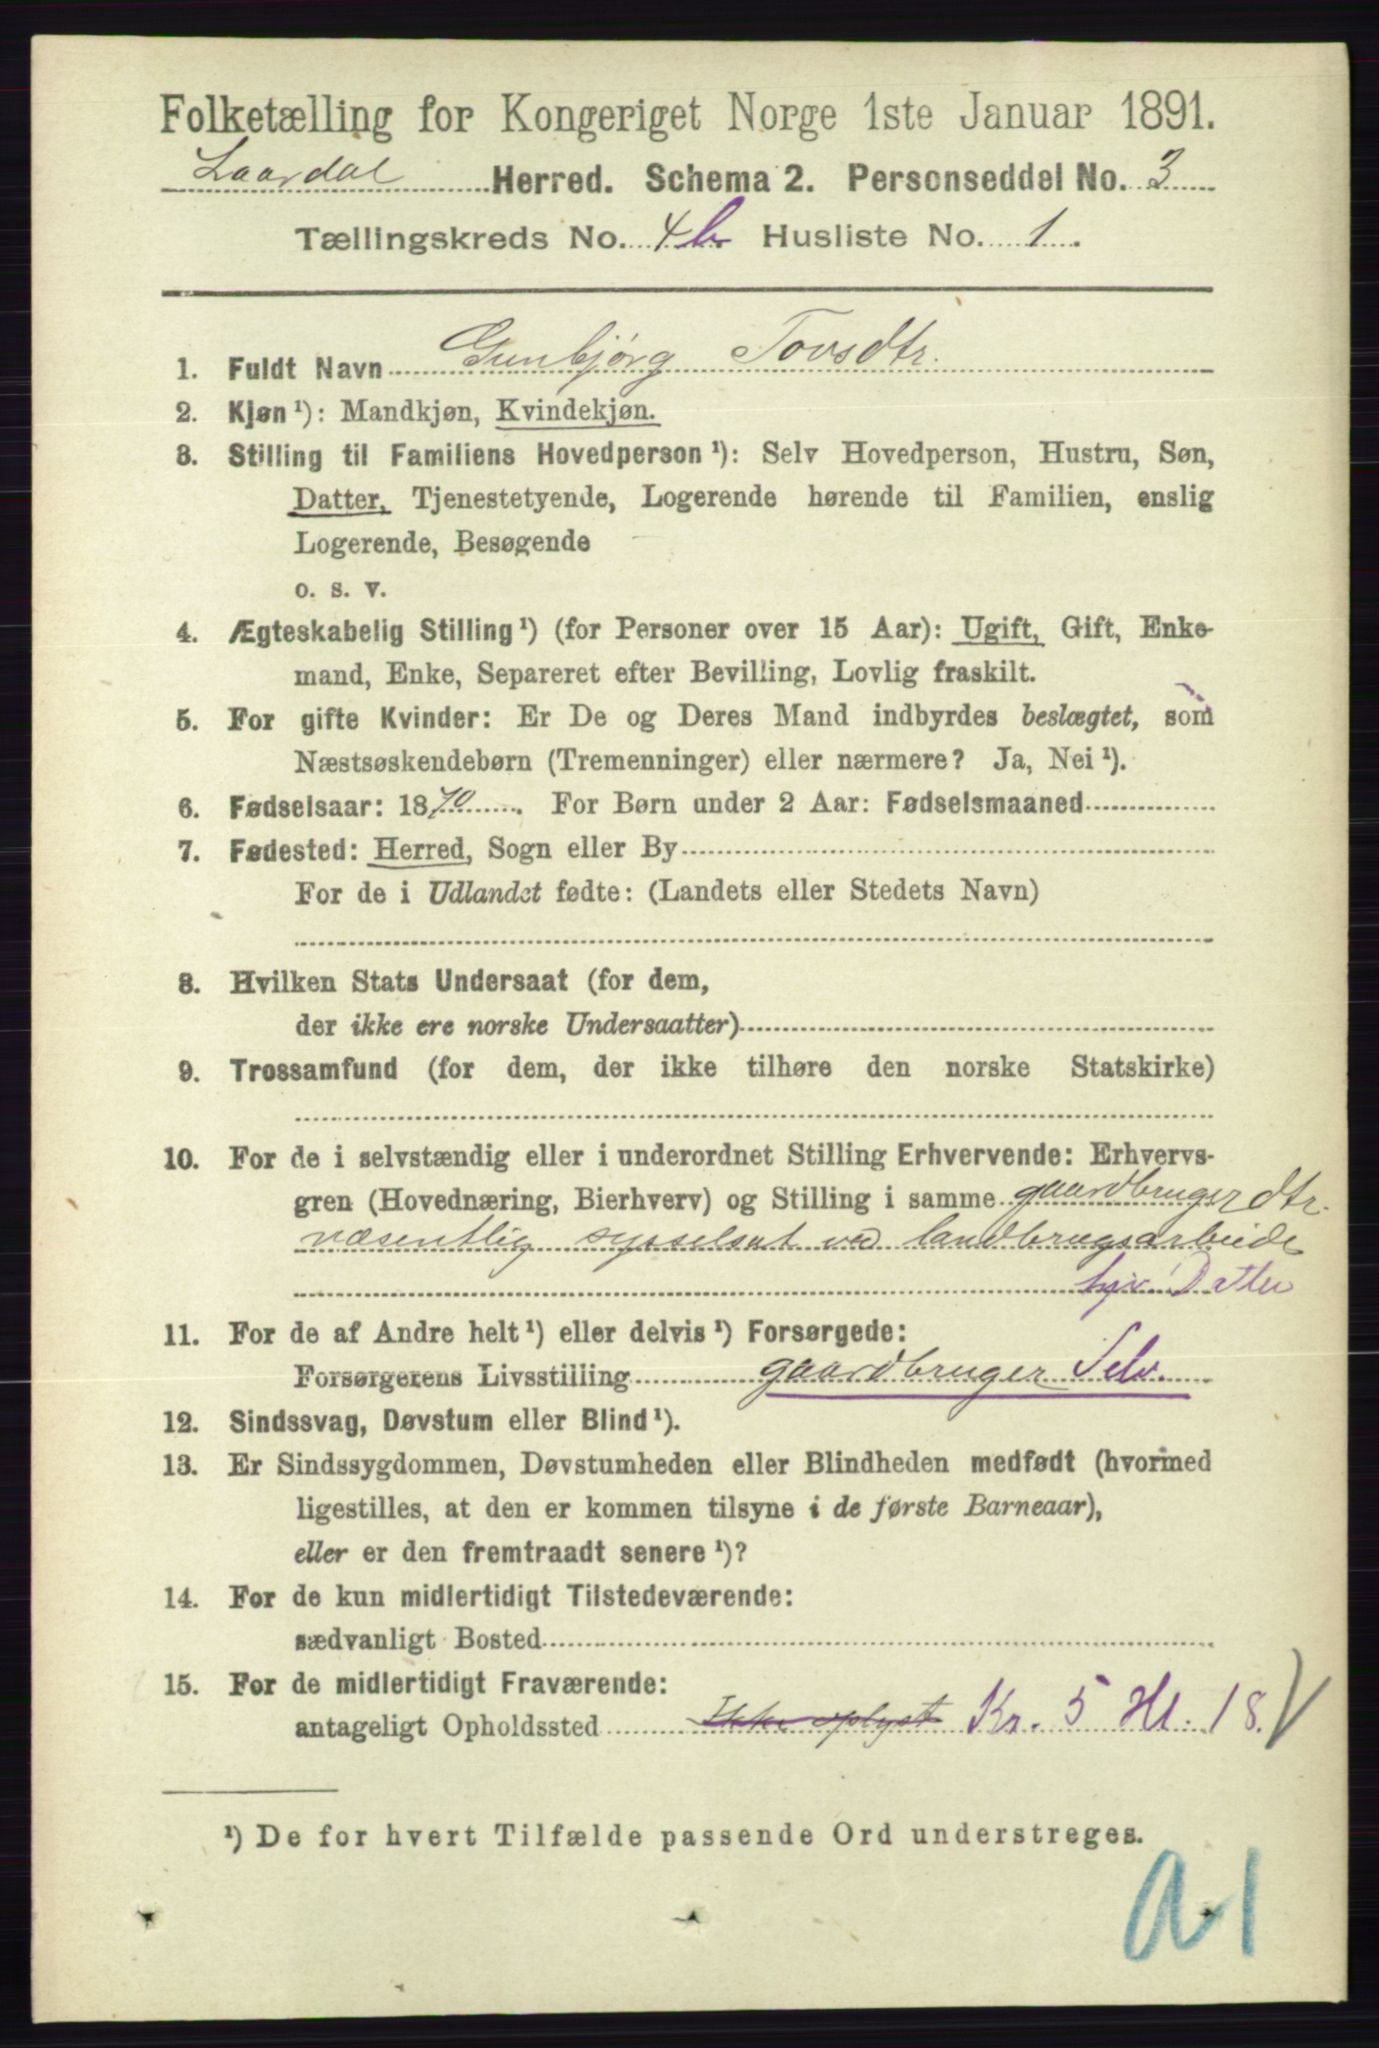 Folketælling for Kongeriget Norge 1ste Januar 1891.
Laardal Herred. Schema 2. Personseddel No. 3
Tællingskreds No. 4b Husliste No. 1.
1. Fuldt Navn Gunbjørg Tovsdtr.
2. Kjøn ¹): Mandkjøn, Kvindekjøn.
3. Stilling til Familiens Hovedperson ¹): Selv Hovedperson, Hustru, Søn,
Datter, Tjenestetyende, Logerende hørende til Familien, enslig
Logerende, Besøgende
o. s. v.
4. Ægteskabelig Stilling ¹) (for Personer over 15 Aar): Ugift, Gift, Enke-
mand, Enke, Separeret efter Bevilling, Lovlig fraskilt.
5. For gifte Kvinder: Er De og Deres Mand indbyrdes beslægtet, som
Næstsøskendebørn (Tremenninger) eller nærmere? Ja, Nei ¹).
6. Fødselsaar: 1870. For Børn under 2 Aar: Fødselsmaaned
7. Fødested: Herred, Sogn eller By
For de i Udlandet fødte: (Landets eller Stedets Navn)
8. Hvilken Stats Undersaat (for dem,
der ikke ere norske Undersaatter)
9. Trossamfund (for dem, der ikke tilhøre den norske Statskirke)
10. For de i selvstændig eller i underordnet Stilling Erhvervende: Erhvervs-
gren (Hovednæring, Bierhverv) og Stilling i samme gaardbruger dtr.
væsentlig sysselsat ved landbrugsarbeide
hjv. Datter
11. For de af Andre helt ¹) eller delvis ¹) Forsørgede:
Forsørgerens Livsstilling gaardbruger Selv.
12. Sindssvag, Døvstum eller Blind ¹).
13. Er Sindssygdommen, Døvstumheden eller Blindheden medfødt (hvormed
ligestilles, at den er kommen tilsyne i de første Barneaar),
eller er den fremtraadt senere ¹)?
14. For de kun midlertidigt Tilstedeværende:
sædvanligt Bosted
15. For de midlertidigt Fraværende:
antageligt Opholdssted Ikke oplyst Kr. 5 Hl. 18. V
¹) De for hvert Tilfælde passende Ord understreges.
a1